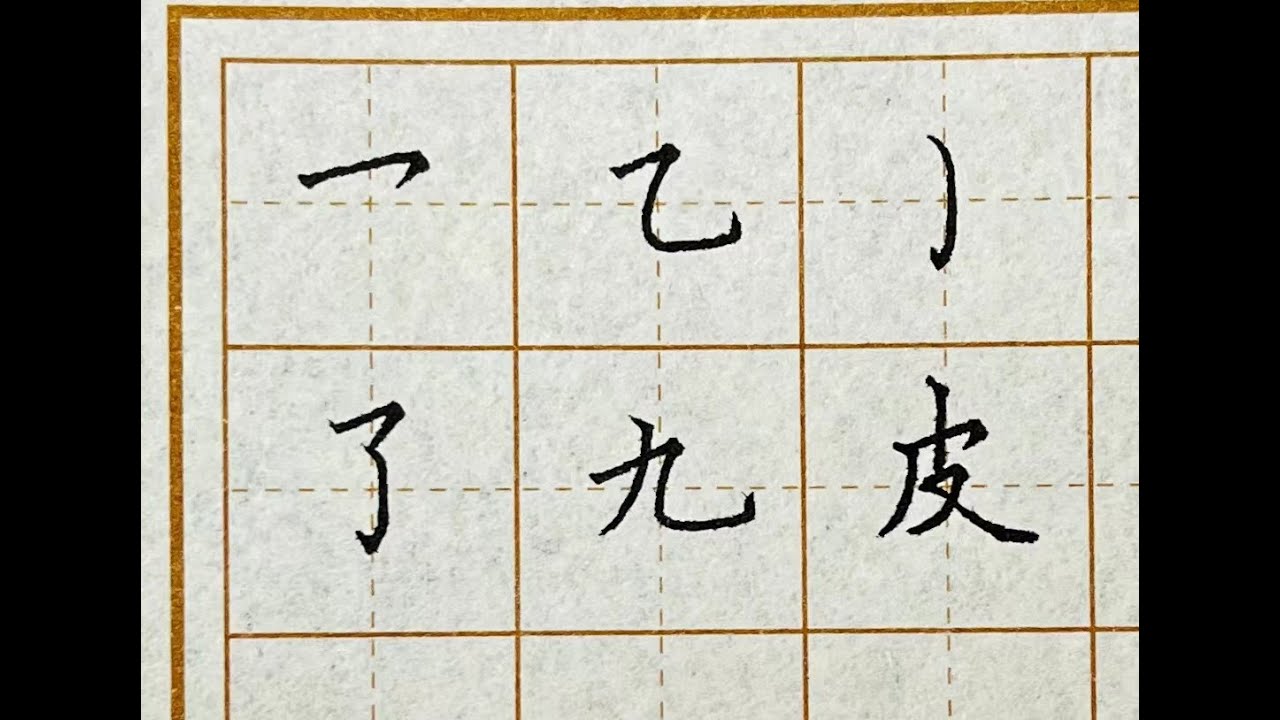 乛 乙 ㇁
了 九 皮